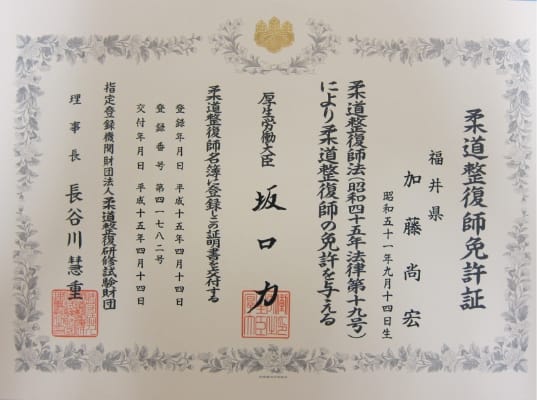 柔道整復師免許証
福井県
加藤尚宏
昭和五十一年九月十四日生
柔道整復師法(昭和四十五年法律第十九号)
により柔道整復師の免許を与える
厚生労働大臣 坂口力
柔道整復師名簿に登録しこの証明書を交付する
登録年月日 平成十五年四月十四日
登録番号 第四一七八二号
交付年月日 平成十五年四月十四日
指定登録機関財団法人柔道整復研修試験財団
理事長 長谷川慧重